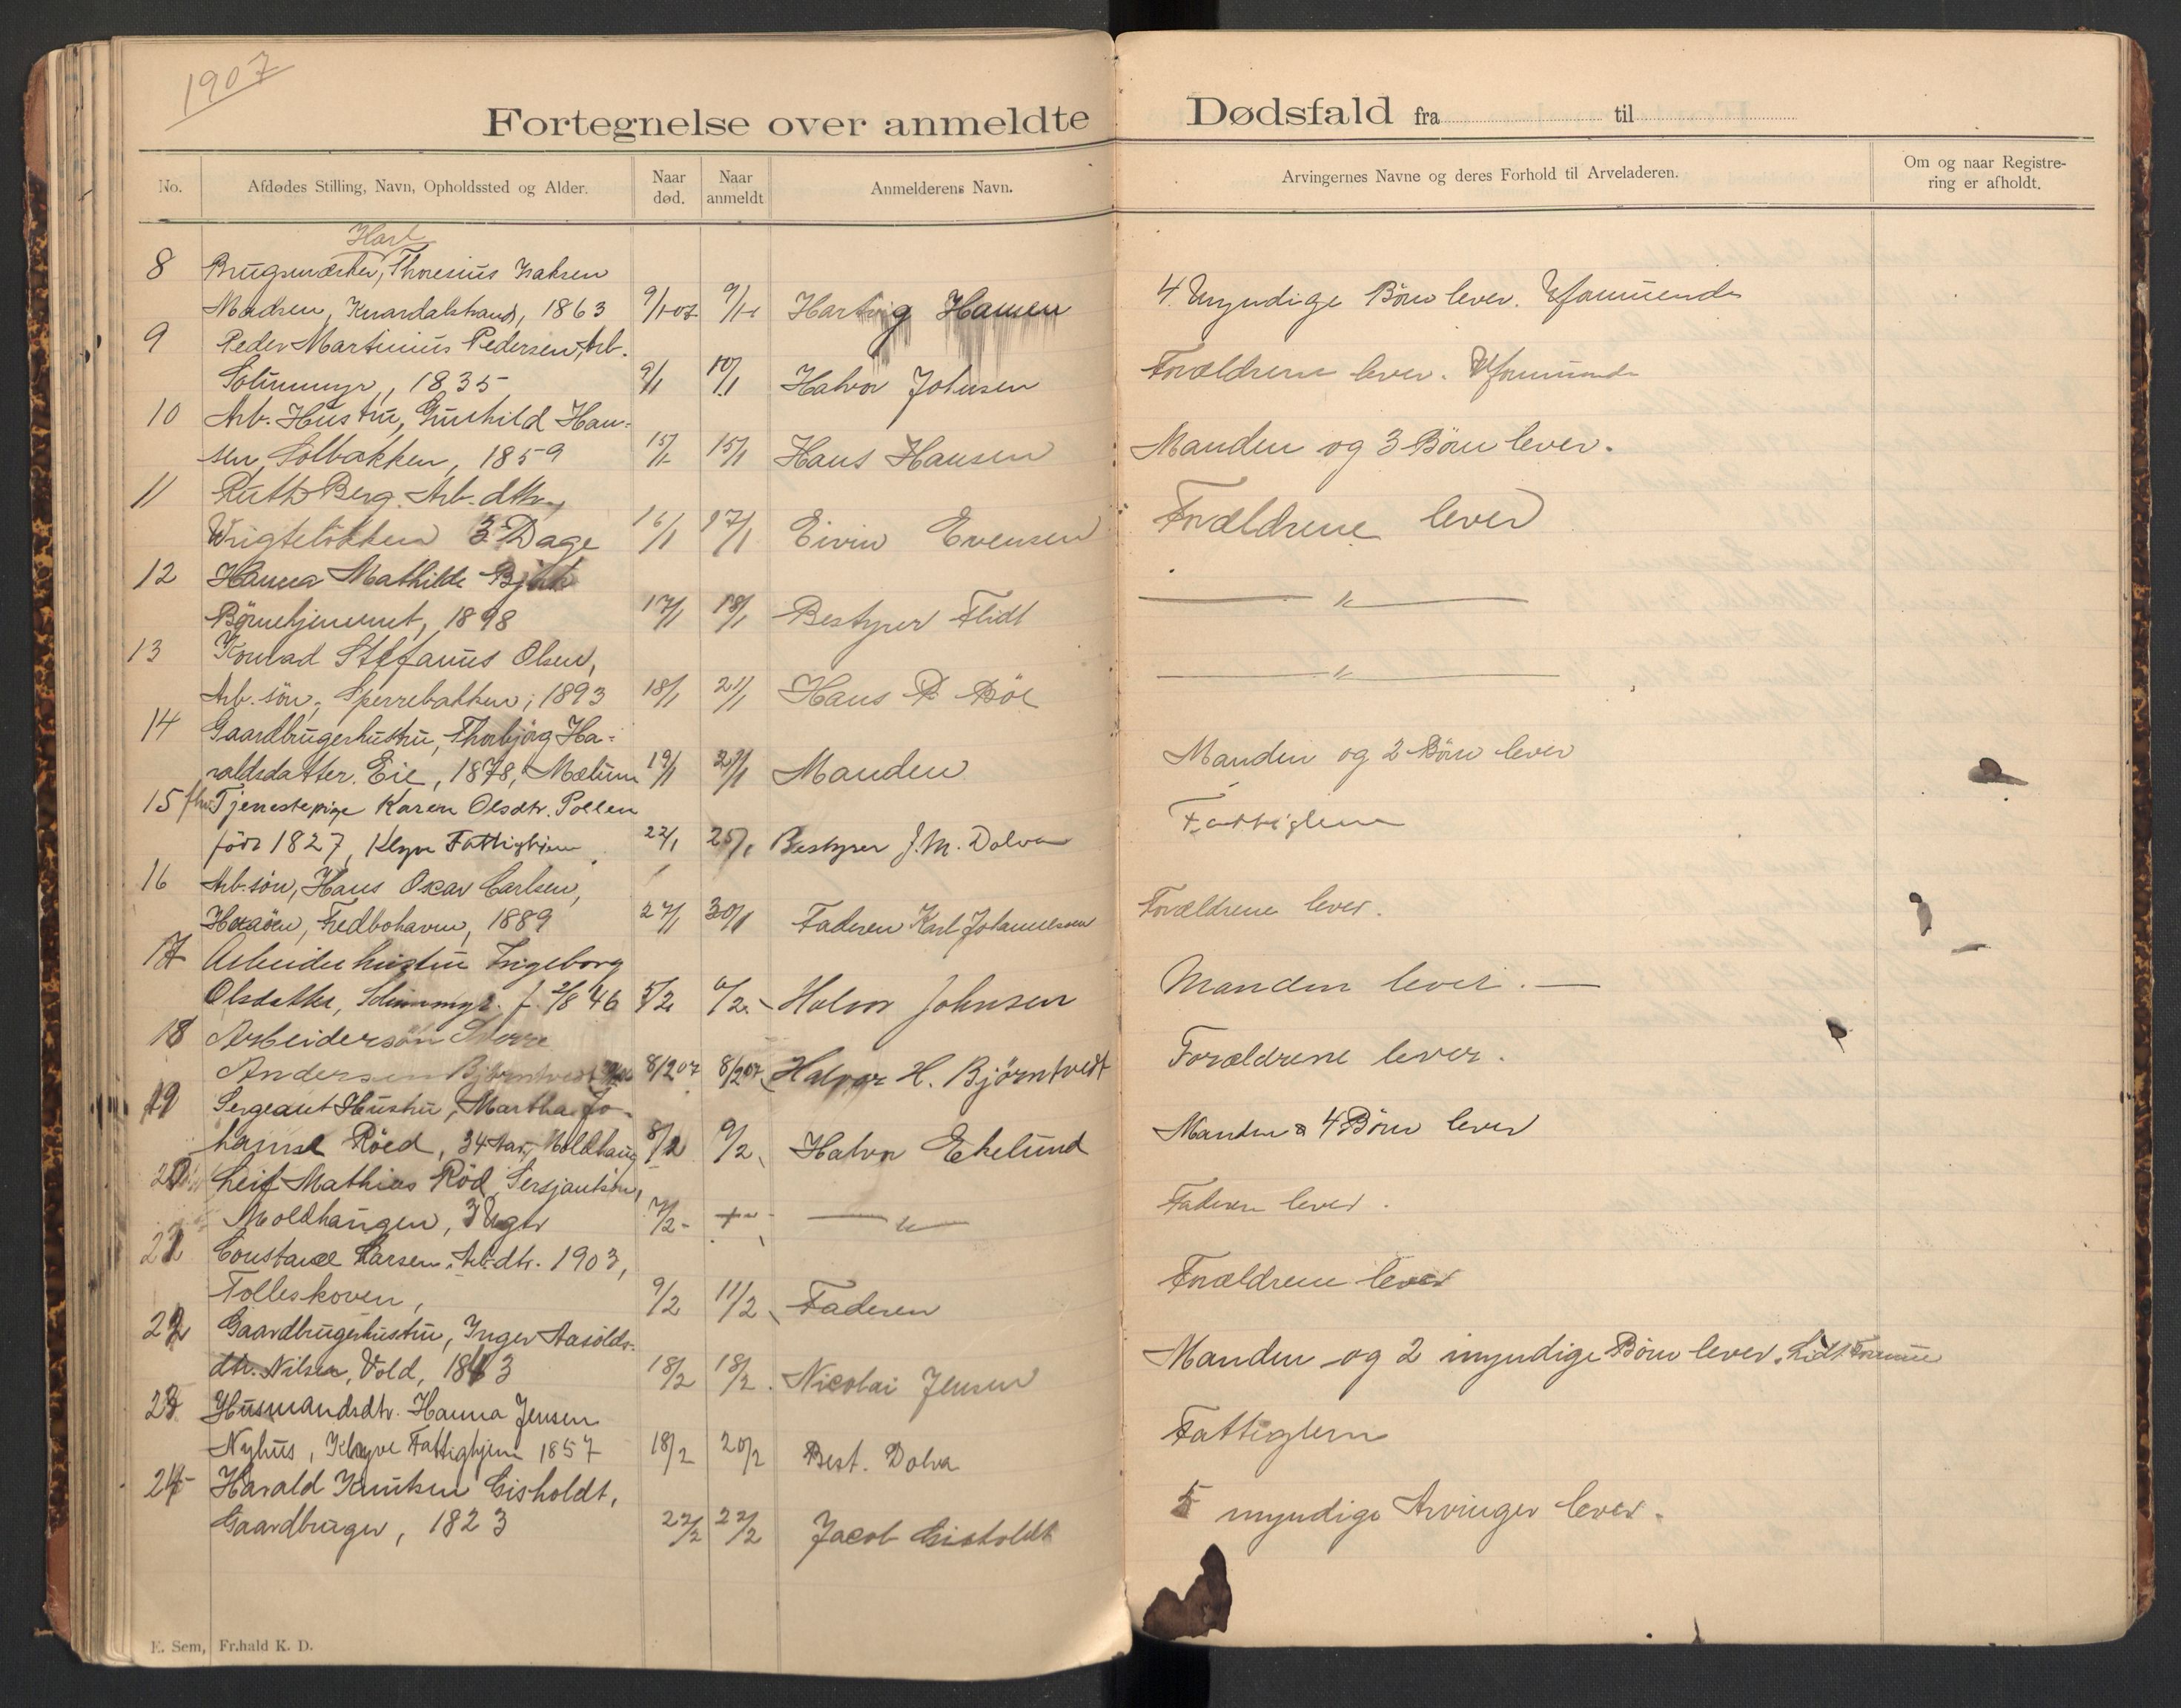 1907
Fortegnelse over anmeldte Dødsfald fra til
No. Afdødes Stilling, Navn, Opholdssted og Alder. Naar død. Naar anmeldt Anmelderens Navn. Arvingernes Navne og deres Forhold til Arveladeren. Om og naar Registrering er afholdt.
8 Thoresius Isaksen
Madsen, Knardalstrand, 1863 9/1-07 9/1 Hartvig Hansen 4 Umyndige Börn lever. Uformuende
9 Peder Martinius Pedersen, Arb.
Solummyr, 1835 9/1 10/1 Halvor Johnsen Forældrene lever. Uformuende
10 Arb. Hustru, Gunhild Han-
sen, Solbakken, 1859 15/1 15/1 Hans Hansen Manden og 3 Börn lever.
11 Ruth Berg. Arb. dtr.,
3 Dage 16/1 17/1 Eivin Evensen Forældrene lever
12 Hanna Mathilde
Börnehjemmet, 1898 17/1 18/1 Bestyrer Flidt — " —
13 Konrad Stefanus Olsen,
Arb. sön, Sperrebakken, 1893 18/1 21/1 Hans P. Böe — " —
14 Gaardbrugerhustru, Thorbjörg Ha-
raldsdatter. Eie, 1878, Mælum 19/1 Manden Manden og 2 Börn lever
15 Tjenestepige Karen Olsdtr. Pollen
föd 1827, Klyve Fattighjem 22/1 25/1 Bestyrer J. M. Dolva Fattiglem
16 Arb. sön, Hans Oscar Carlsen,
Fredbohavn, 1889 27/1 30/1 Faderen Karl Johannessen Forældrene lever.
17 Arbeiderhustru Ingeborg
Olsdatter, Solummyr. f. 2/8 46 5/2 6/2 Halvor Johnsen Manden lever. —
18 Arbeidersön Sverre
Andersen Björntvedt 8/2 07 8/2 07 Halvor H. Björntvedt Forældrene lever.
19 Sergeant Hustru, Martha Jo-
hanne Röed, 34 Aar, Moldhaug 8/2 9/2 Halvor Ekelund Manden & 4 Börn lever
20 Leif Mathias Röd, Sersjantsön,
Moldhaugen, 3 Uger 7/2 - — " — Faderen lever.
21 Constance Larsen, Arb. dtr. 1903,
Tolleskoven, 9/2 11/2 Faderen Forældrene lever
22 Gaardbrugerhustru, Inger Aasolds-
dtr. Nilsen, Vold, 1863 18/2 18/2 Nicolai Jensen Manden og 2 myndige Börn lever. Lidt Formue
23 Husmandsdtr. Hanna Jensen
Nyhus, Klyve Fattighjem 1857 18/2 20/2 Best. Dolva Fattiglem
24 Harald Knutsen Gisholdt,
Gaardbruger, 1823 22/2 22/2 Jacob Gisholdt 5 myndige Arvinger lever.
E. Sem, Fr.hald K. D.